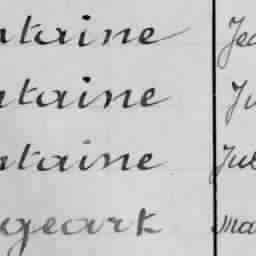 ntaine Jea
ntaine Ju
ntaine Jul
geark Ma